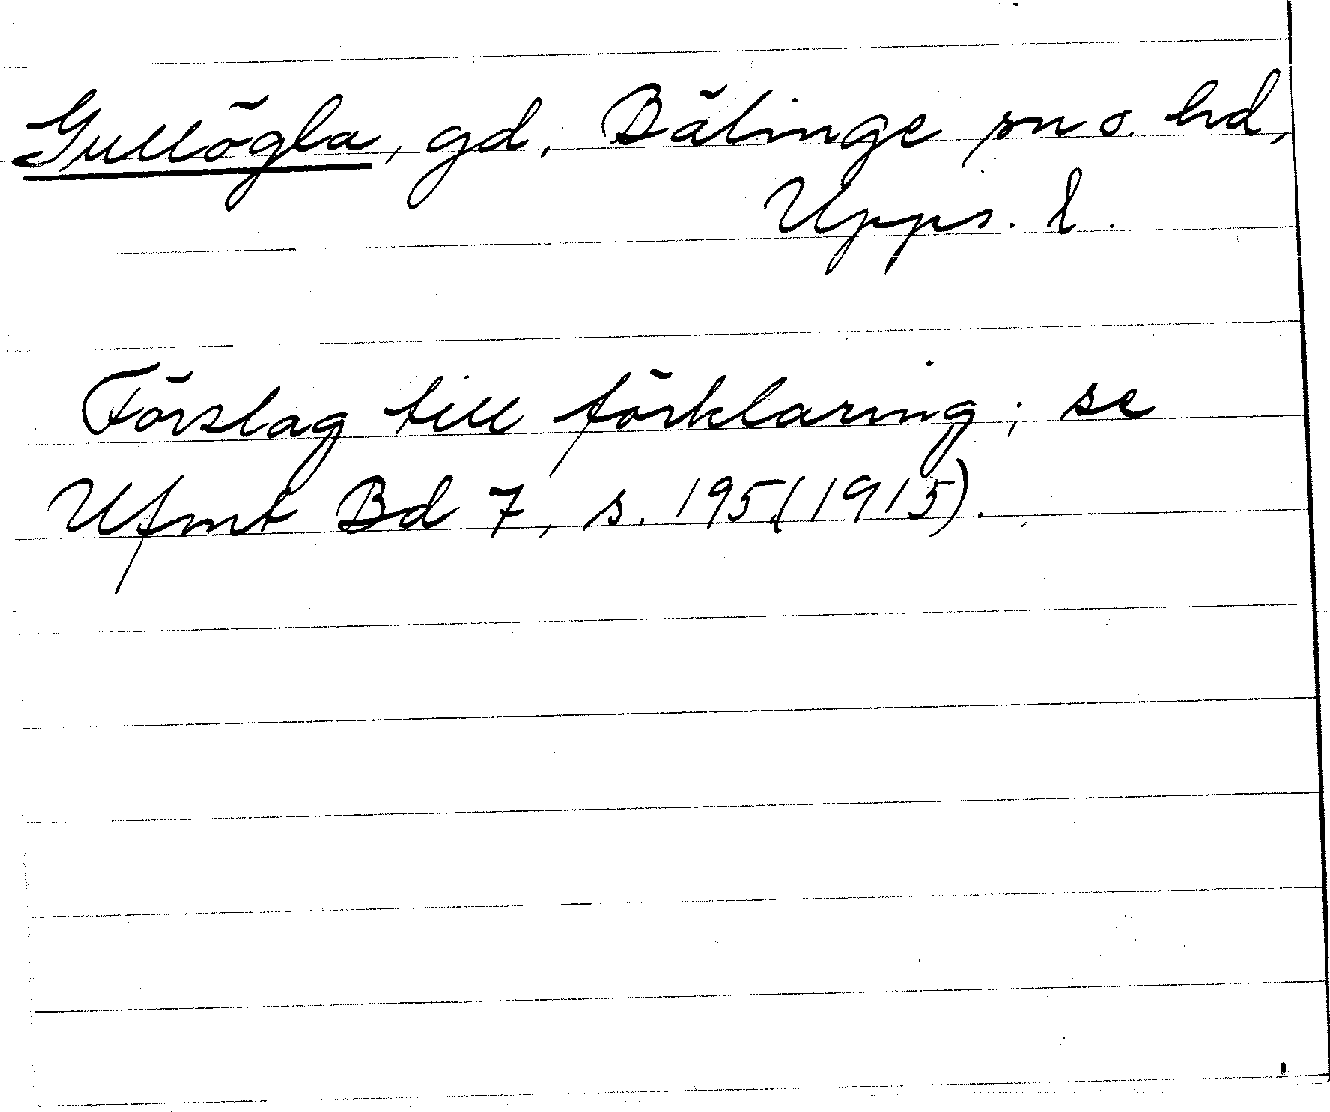 Gullögla, gd, Bälinge sn o. hd,
Upps. l.
Förslag till förklaring; se
Ufmt Bd 7, s. 195 (1915).